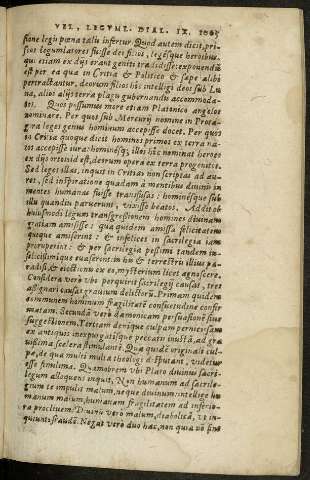 VEL, LEGVM. DIAL. IX. 1005
sione legis pœna talis infertur. Quod autem dicit, pri-
scos legumlatores fuisse deorum filios, legesque heroibus
qui etiam ex dijs erant geniti tradidisse: exponendum
est per ea quæ in Critia & Politico & sæpe alibi
pertractantur, deorum filios hîc intelligi deos sub Lu-
na, alios alijs terræ plagis gubernandis accommoda-
tos. Quos possumus more etiam Platonico angelos
nominare. Per quos sub Mercurij nomine in Prota-
gora leges genus hominum accepisse docet. Per quos
in Critia quoque dicit homines primos ex terra na-
tos accepisse iura: hominesque illos hîc nominat heroes
ex dijs ortos id est, deorum opera ex terra progenitos.
Sed leges illas, inquit in Critia, non scriptas ad au-
res, sed inspiratione quadam à mentibus diuinis in
mentes humanas fuisse transfusas: hominesque sub
illis quandiu paruerunt, vixisse beatos. Addit ob
huiusmodi legum transgressionem homines diuinam
gratiam amisisse: qua quidem amissa felicitatem
quoque amiserint: & infelices in sacrilegia iam
proruperint: & per sacrilegia pessimi tandem in-
felicissimique euaserint. in his & terrestris illius pa-
radisi, & eiectionis ex eo, mysterium licet agnoscere.
Considera verò vbi perquirit sacrilegij causas, tres
assignari causas grauium delictorum. Primam quidem
communem hominum fragilitatem consuetudine confir-
matam. Secundam verò dæmonicam persuasionem siue
suggestionem. Tertiam denique culpam perniciosam
ex antiquis inexpurgatisque peccatis inustam, ad gra-
uissima scelera stimulantem. Quæ quidem originali cul-
pæ, de qua multi multa theologi disputant, videtur
esse simillima. Quamobrem vbi Plato diuinus sacri-
legum alloquens inquit, Non humanum ad sacrile-
gium te impulit malum, neque diuinum: intellige hu-
manum malum, humanam fragilitatem ad inferio-
ra procliuem: Diuinum verò malum, diabolicam, vt in-
quiunt, fraudem. Negat verò duo hæc, non quia vò sine